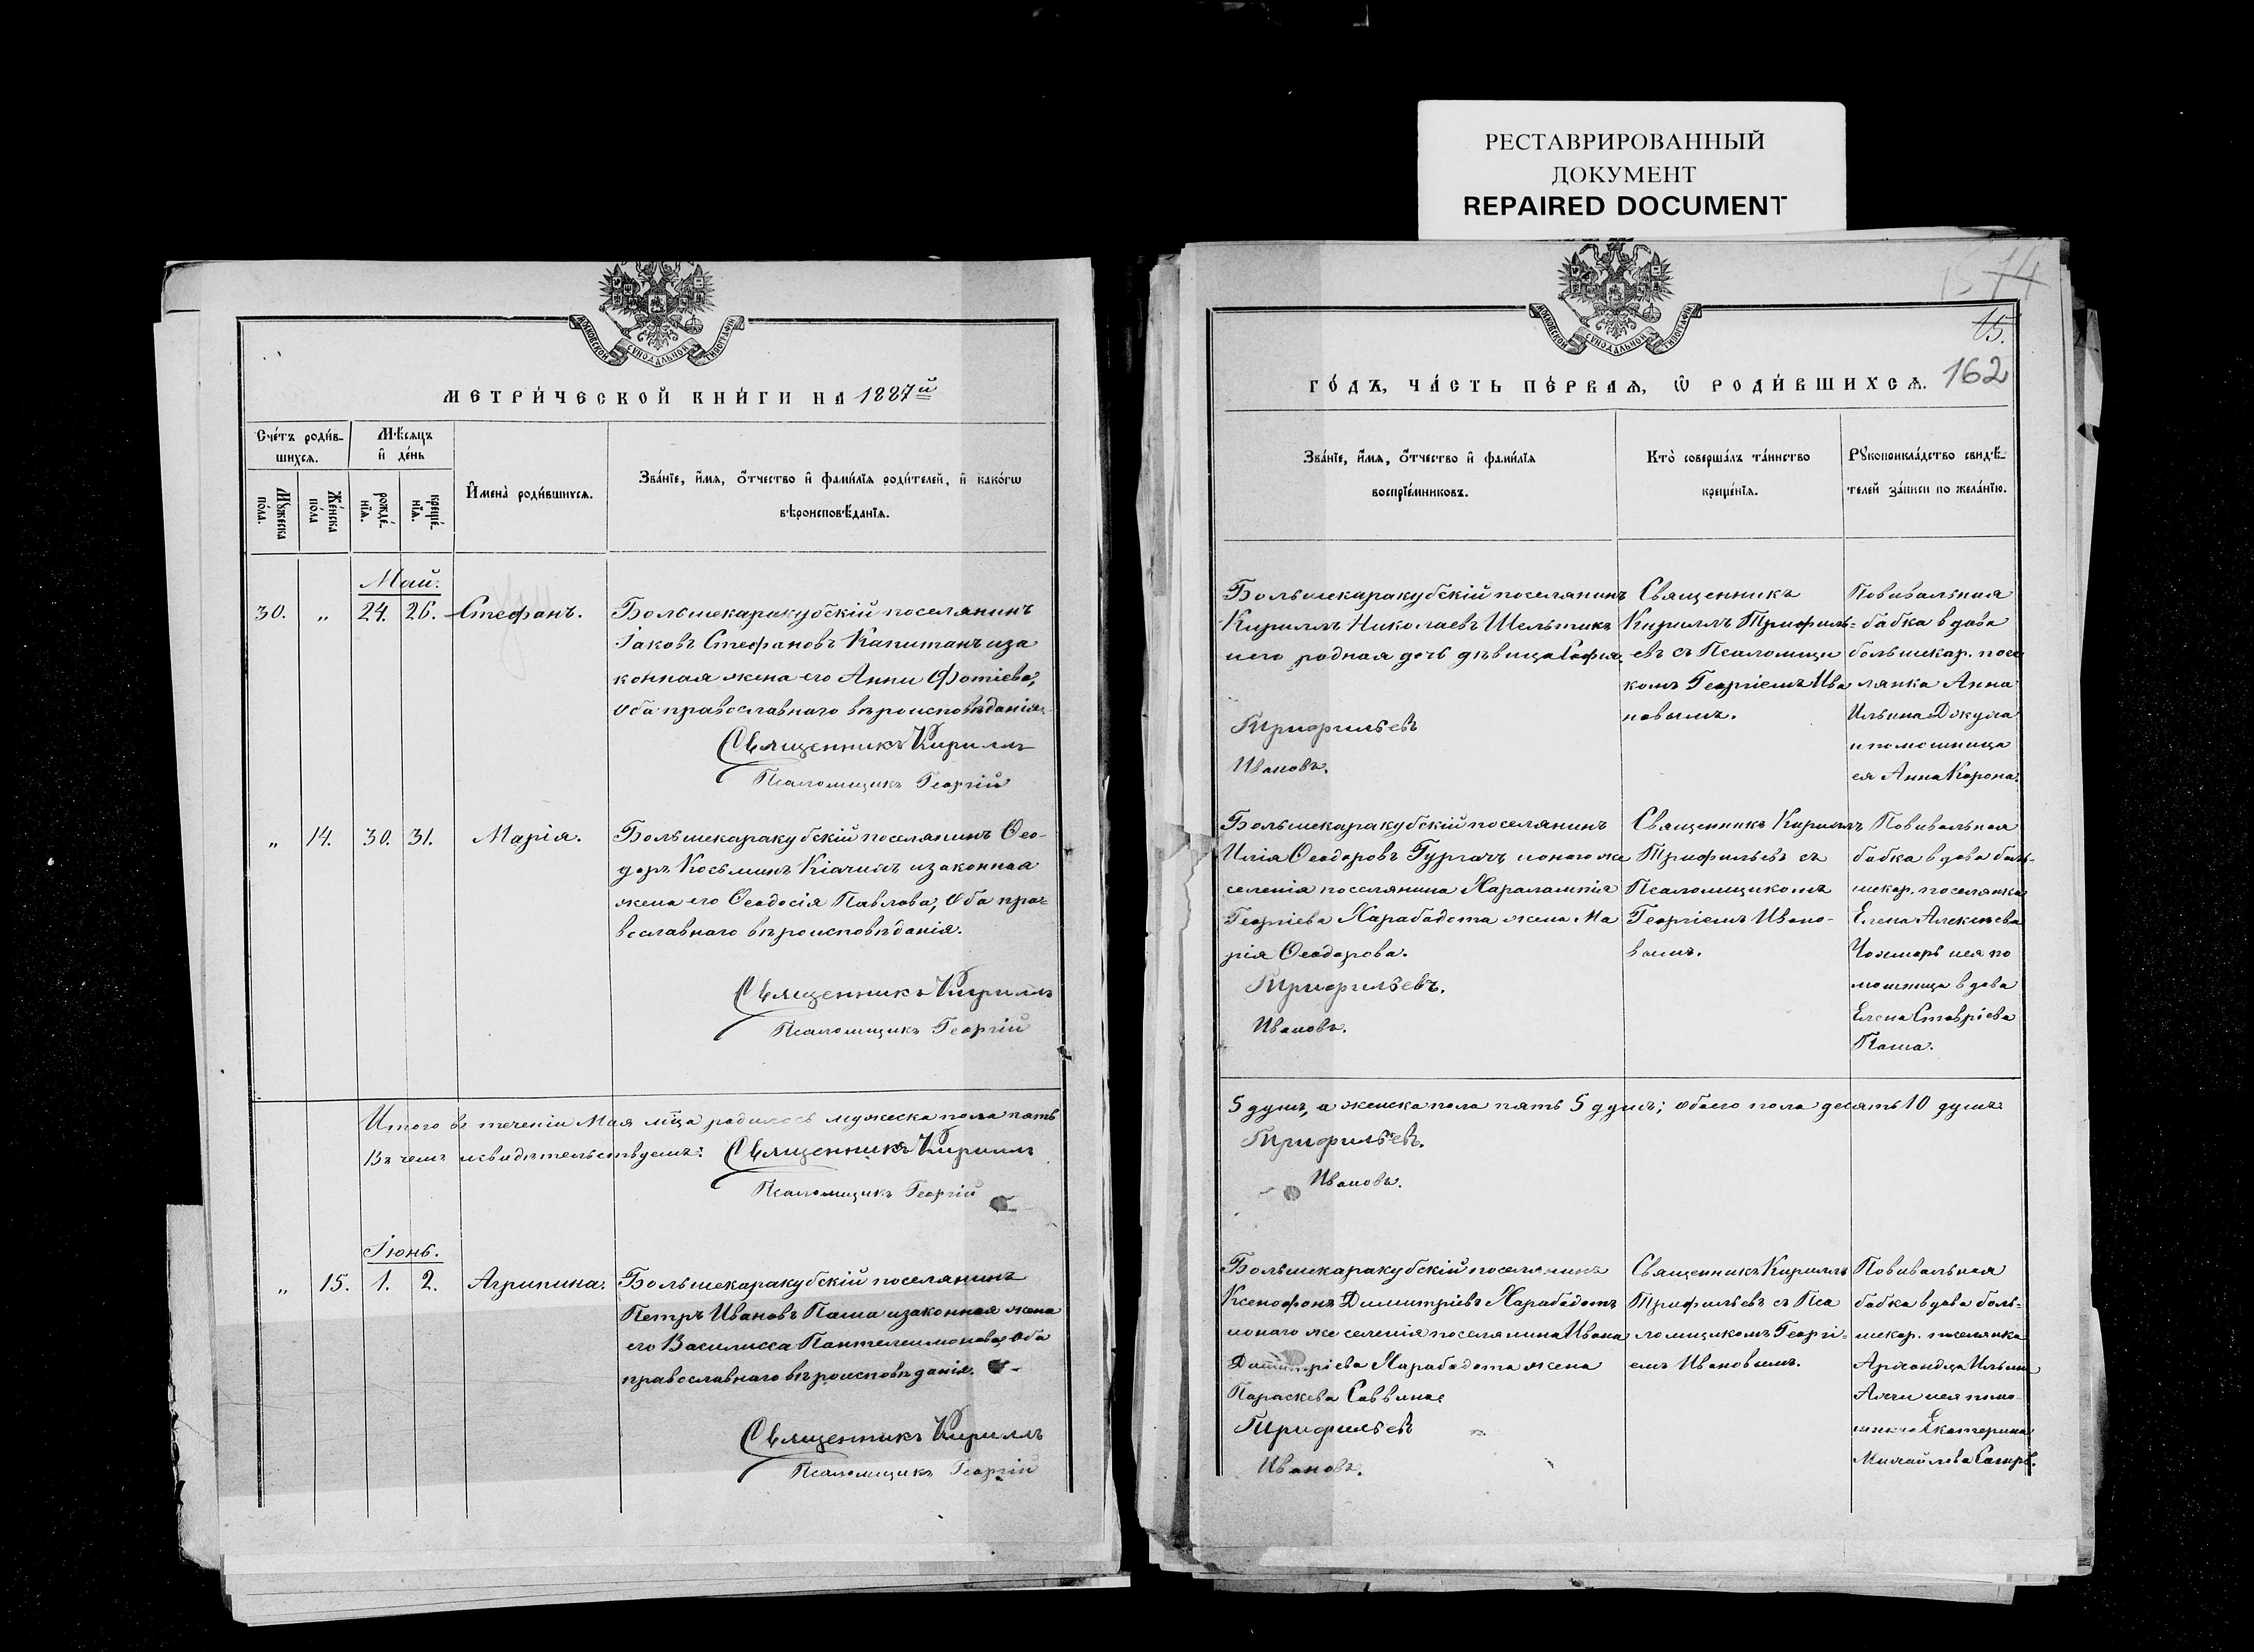 РЕСТАВРИРОВАННЫЙ
ДОКУМЕНТ
REPAIRED DOCUMENT
МОСКОВСКОЙ СѴНОДАЛЬНОЙ ТИПОГРАФІИ
МЕТРИ́ЧЕСКОЙ КНИ́ГИ НА 1887й
Сче́тъ роди́в-
шихсѧ.
Мѣ́сѧцъ
и҆ де́нь
Мꙋ́жеска
по́ла.
Же́нска
по́ла
рожде́-
нїѧ.
креще́-
нїѧ.
И҆мена̀ роди́вшихсѧ.
Зва́нїе, и҆́мѧ, ѻ҆́тчество и҆ фами́лїѧ роди́телей, и҆ како́гѡ
вѣроисповѣ́данїѧ.
Май.
30. „ 24. 26. Стефанъ.
Большекаракубскій поселянинъ
Іаковъ Стефановъ Капитанъ иза
конная жена его Анна Фотіева,
оба православнаго вѣроисповѣданія.
Священникъ Кириллъ
Псаломщикъ Георгій
„ 14. 30. 31. Марія.
Большекаракубскій поселянинъ Ѳео-
доръ Косьминъ изаконная
жена его Ѳеодосія Павлова, оба пра-
вославнаго вѣроисповѣданія.
Священникъ Кириллъ
Псаломщикъ Георгій
Итого въ теченіи Мая мца родилось мужеска пола пять
Въ чемъ исвидѣтельствуемъ: Священникъ Кириллъ
Псаломщикъ Георгій
Іюнь.
„ 15. 1. 2. Агрипина.
Большекаракубскій поселянинъ
Петръ Ивановъ Паша изаконная жена
его Василисса Пантелеимонова, оба
православнаго вѣроисповѣданія.
Священникъ Кириллъ
Псаломщикъ Георгій
14
15.
162
МОСКОВСКОЙ СѴНОДАЛЬНОЙ ТИПОГРАФІИ
ГО́ДЪ, ЧА́СТЬ ПЕ́РВАѦ, Ѽ РОДИ́ВШИХСѦ.
Зва́нїе, и҆́мѧ, ѻ҆́тчество и҆ фами́лїѧ
воспрїе́мниковъ.
Кто̀ соверша́лъ та́инство
креще́нїѧ.
Рꙋкоприкла́дство свидѣ́-
телей за́писи по жела́нїю.
Большекаракубскій поселянинъ
Кириллъ Николаевъ Шельтикъ
иего родная дочь дѣвица Софія.
Трифильевъ
Ивановъ.
Священникъ
Кириллъ Трифиль-
евъ съ Псаломщи
комъ Георгіемъ Ива
новымъ.
Повивальная
бабка вдова
большекар. посе
лянка Анна
Ильина Джума
и помошница
ея Анна Корона.
Большекаракубскій поселянинъ
Илія Ѳеодоровъ Гургачъ ионагоже
селенія поселянина Харалампія
Георгіева Харабадота жена Ма
рія Ѳеодорова.
Трифильевъ.
Ивановъ.
Священникъ Кириллъ
Трифильевъ съ
Псаломщикомъ
Георгіемъ Ивано-
вымъ.
Повивальная
бабка вдова боль-
шекар. поселянка
Елена Алексѣева
иея по
мошница вдова
Елена Ставріева
Паша.
5 душъ, а женска пола пять 5 душъ; обоего пола десять 10 душъ
Трифильевъ.
Ивановъ.
Большекаракубскій поселянинъ
Ксенофонъ Димитріевъ Харабадотъ
ионаго же селенія поселянина Ивана
Димитріева Харабадота жена
Параскева Саввина
Трифильевъ
Ивановъ.
Священникъ Кириллъ
Трифильевъ съ Пса
ломщикомъ Георгі-
емъ Ивановымъ.
Повивальная
бабка вдова боль-
шекар. поселянка
Ильина
иея помо-
шница Екатерина
Михайлова